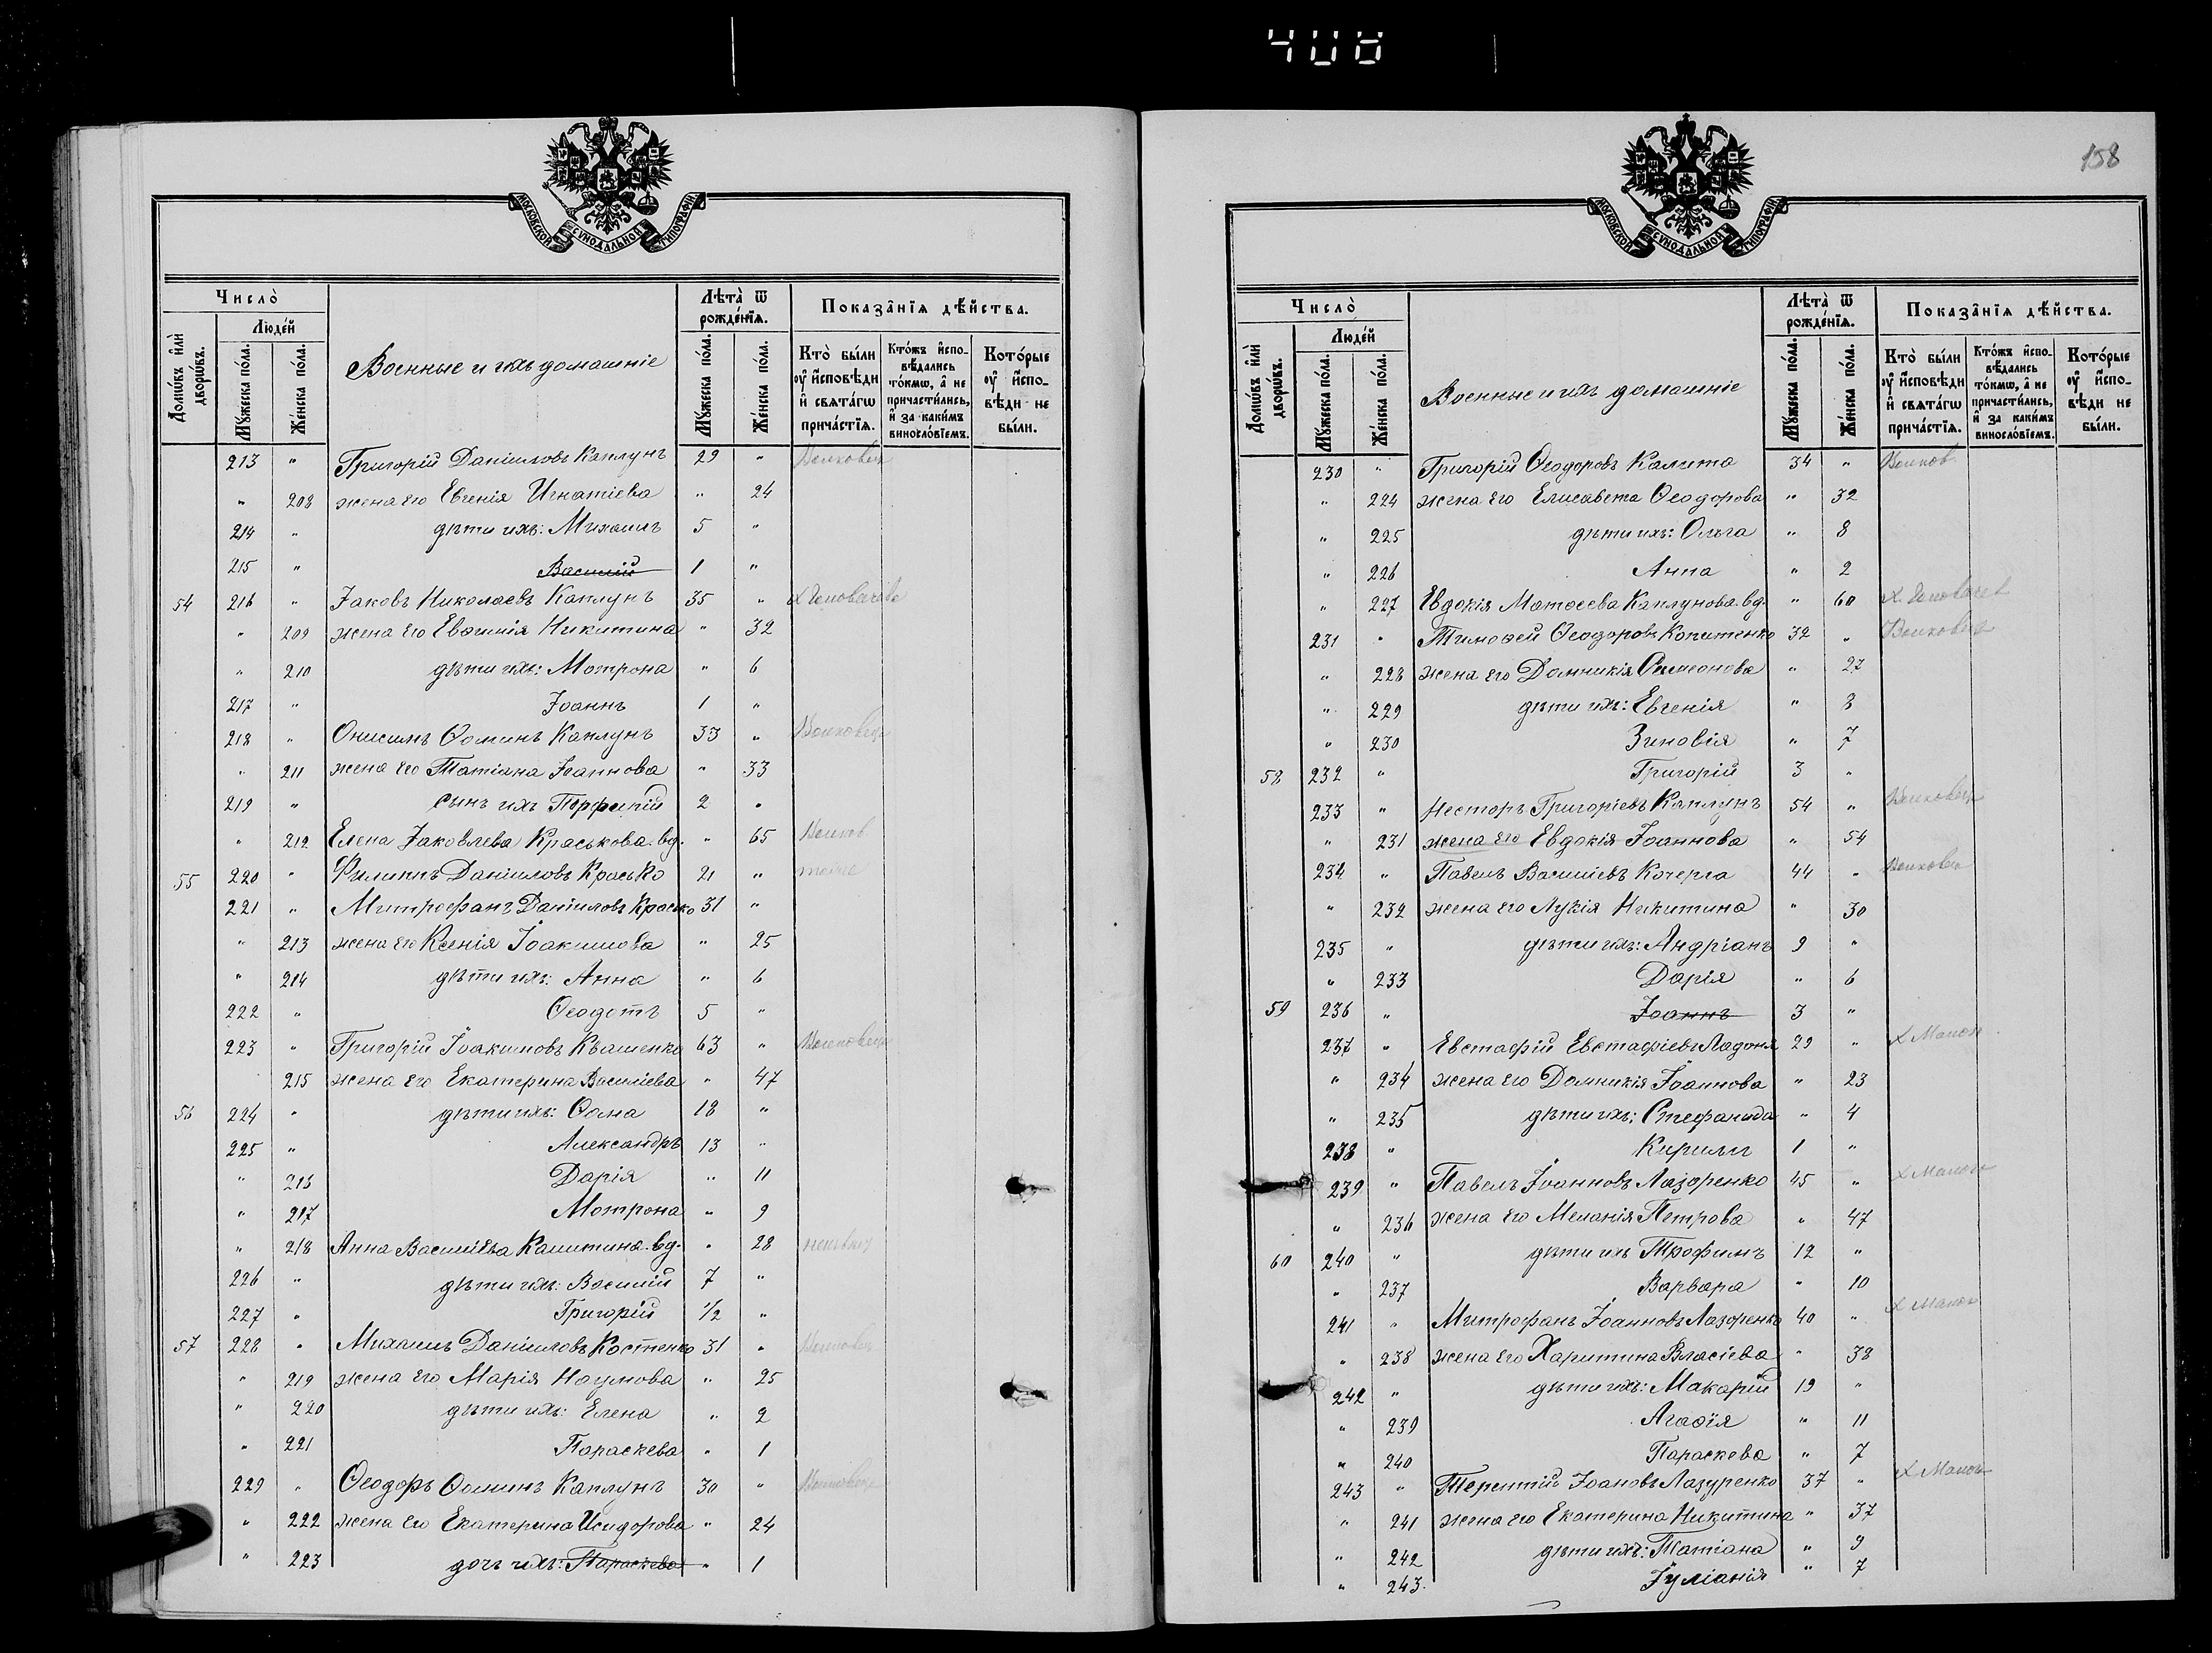 408
МОСКОВСКОЙ СѴНОДАЛЬНОЙ ТИПОГРАФІИ
Число̀
Домѡ́въ и҆лѝ дворѡ́въ.
Люде́й
Мꙋ́жеска по́ла.
Же́нска по́ла.
Военные и ихъ домашніе
Лѣта̀ ѿ рожде́нїѧ.
Мꙋ́жеска по́ла.
Же́нска по́ла.
Показа̂нїѧ дѣ́йства.
Кто̀ бы́ли ᲂу҆ и҆сповѣ́ди и҆ свѧта́гѡ прича́стїѧ.
Кто́жъ и҆спо-вѣ́дались то́кмѡ, а҆ не причасти́лись, и҆ за каки́мъ винословїемъ.
Кото́рые ᲂу҆ и҆спо-вѣ́ди не бы́ли.
213 " Григорій Даніиловъ Каплунъ 29 "
" 208 жена его Евгенія Игнатіева " 24
214 " дѣти ихъ: Михаилъ 5 "
215 " Василій 1 "
54 216 " Іаковъ Николаевъ Каплунъ 35 "
" 209 жена его Евѳимія Никитина " 32
" 210 дѣти ихъ: Мотрона " 6
217 " Іоаннъ 1 "
218 " Онисимъ Ѳоминъ Каплунъ 33 "
" 211 жена его Татіана Іоаннова " 33
219 " сынъ ихъ Порфирій 2 "
" 212 Елена Іаковлева Краськова вд. " 65
55 220 " Филиппъ Даніиловъ Красько 21 "
221 " Митрофанъ Даніиловъ Красько 31 "
" 213 жена его Ксенія Іоакимова " 25
" 214 дѣти ихъ: Анна " 6
222 " Ѳеодотъ 5 "
223 " Григорій Іоакимовъ Квашенко 63 "
215 жена его Екатерина Василіева " 47
56 224 " дѣти ихъ: Ѳома 18 "
225 " Александръ 13 "
" 216 Дарія " 11
" 217 Мотрона " 9
" 218 Анна Василіева Калитина вд. " 28
226 " дѣти ихъ: Василій 7 "
227 " Григорій 1/2 "
57 228 " Михаилъ Даніиловъ Костенко 31 "
" 219 жена его Марія Наумова " 25
" 220 дѣти ихъ: Елена " 2
" 221 Параскева " 1
229 " Ѳеодоръ Ѳоминъ Каплунъ 30 "
" 222 жена его Екатерина Исидорова " 24
" 223 дочь ихъ: Параскева " 1
158
МОСКОВСКОЙ СѴНОДАЛЬНОЙ ТИПОГРАФІИ
Число̀
Домѡ́въ и҆лѝ дворѡ́въ.
Люде́й
Мꙋ́жеска по́ла.
Же́нска по́ла.
Военные и ихъ домашніе
Лѣта̀ ѿ рожде́нїѧ.
Мꙋ́жеска по́ла.
Же́нска по́ла.
Показа̂нїѧ дѣ́йства.
Кто̀ бы́ли ᲂу҆ и҆сповѣ́ди и҆ свѧта́гѡ прича́стїѧ.
Кто́жъ и҆спо-вѣ́дались то́кмѡ, а҆ не причасти́лись, и҆ за каки́мъ винословїемъ.
Кото́рые ᲂу҆ и҆спо-вѣ́ди не бы́ли.
230 " Григорій Ѳеодоровъ Калита 34 "
" 224 жена его Елисавета Ѳеодорова " 32
" 225 дѣти ихъ: Ольга " 8
" 226 Анна " 2
" 227 Евдокія Матѳеева Каплунова вд. " 60
231 " Тимоѳей Ѳеодоровъ Копитенко 32 "
" 228 жена его Домникія Симеонова " 27
" 229 дѣти ихъ: Евгенія " 8
" 230 Зиновія " 7
58 232 " Григорій 3 "
233 " Несторъ Григоріевъ Каплунъ 54 "
" 231 жена его Евдокія Іоаннова " 54
234 " Павелъ Василіевъ Кочерга 44 "
" 232 жена его Лукія Никитина " 30
235 " дѣти ихъ: Андріанъ 9 "
" 233 Дарія " 6
59 236 " Іоаннъ 3 "
237 " Евстафій Евстафіевъ Ладоня 29 "
" 234 жена его Домникія Іоаннова " 23
" 235 дѣти ихъ: Стефанида " 4
238 " Кириллъ 1 "
239 " Павелъ Іоанновъ Лазоренко 45 "
" 236 жена его Меланія Петрова " 47
60 240 " дѣти ихъ Трофимъ 12 "
" 237 Варвара " 10
241 " Митрофанъ Іоанновъ Лазоренко 40 "
" 238 жена его Харитина Власіева " 38
242 " дѣти ихъ: Макарій 19 "
" 239 Агаѳія " 11
" 240 Параскева " 7
243 " Терентій Іоановъ Лазуренко 37 "
" 241 жена его Екатерина Никитина " 37
" 242 дѣти ихъ: Татіана " 9
" 243. Іуліанія " 7